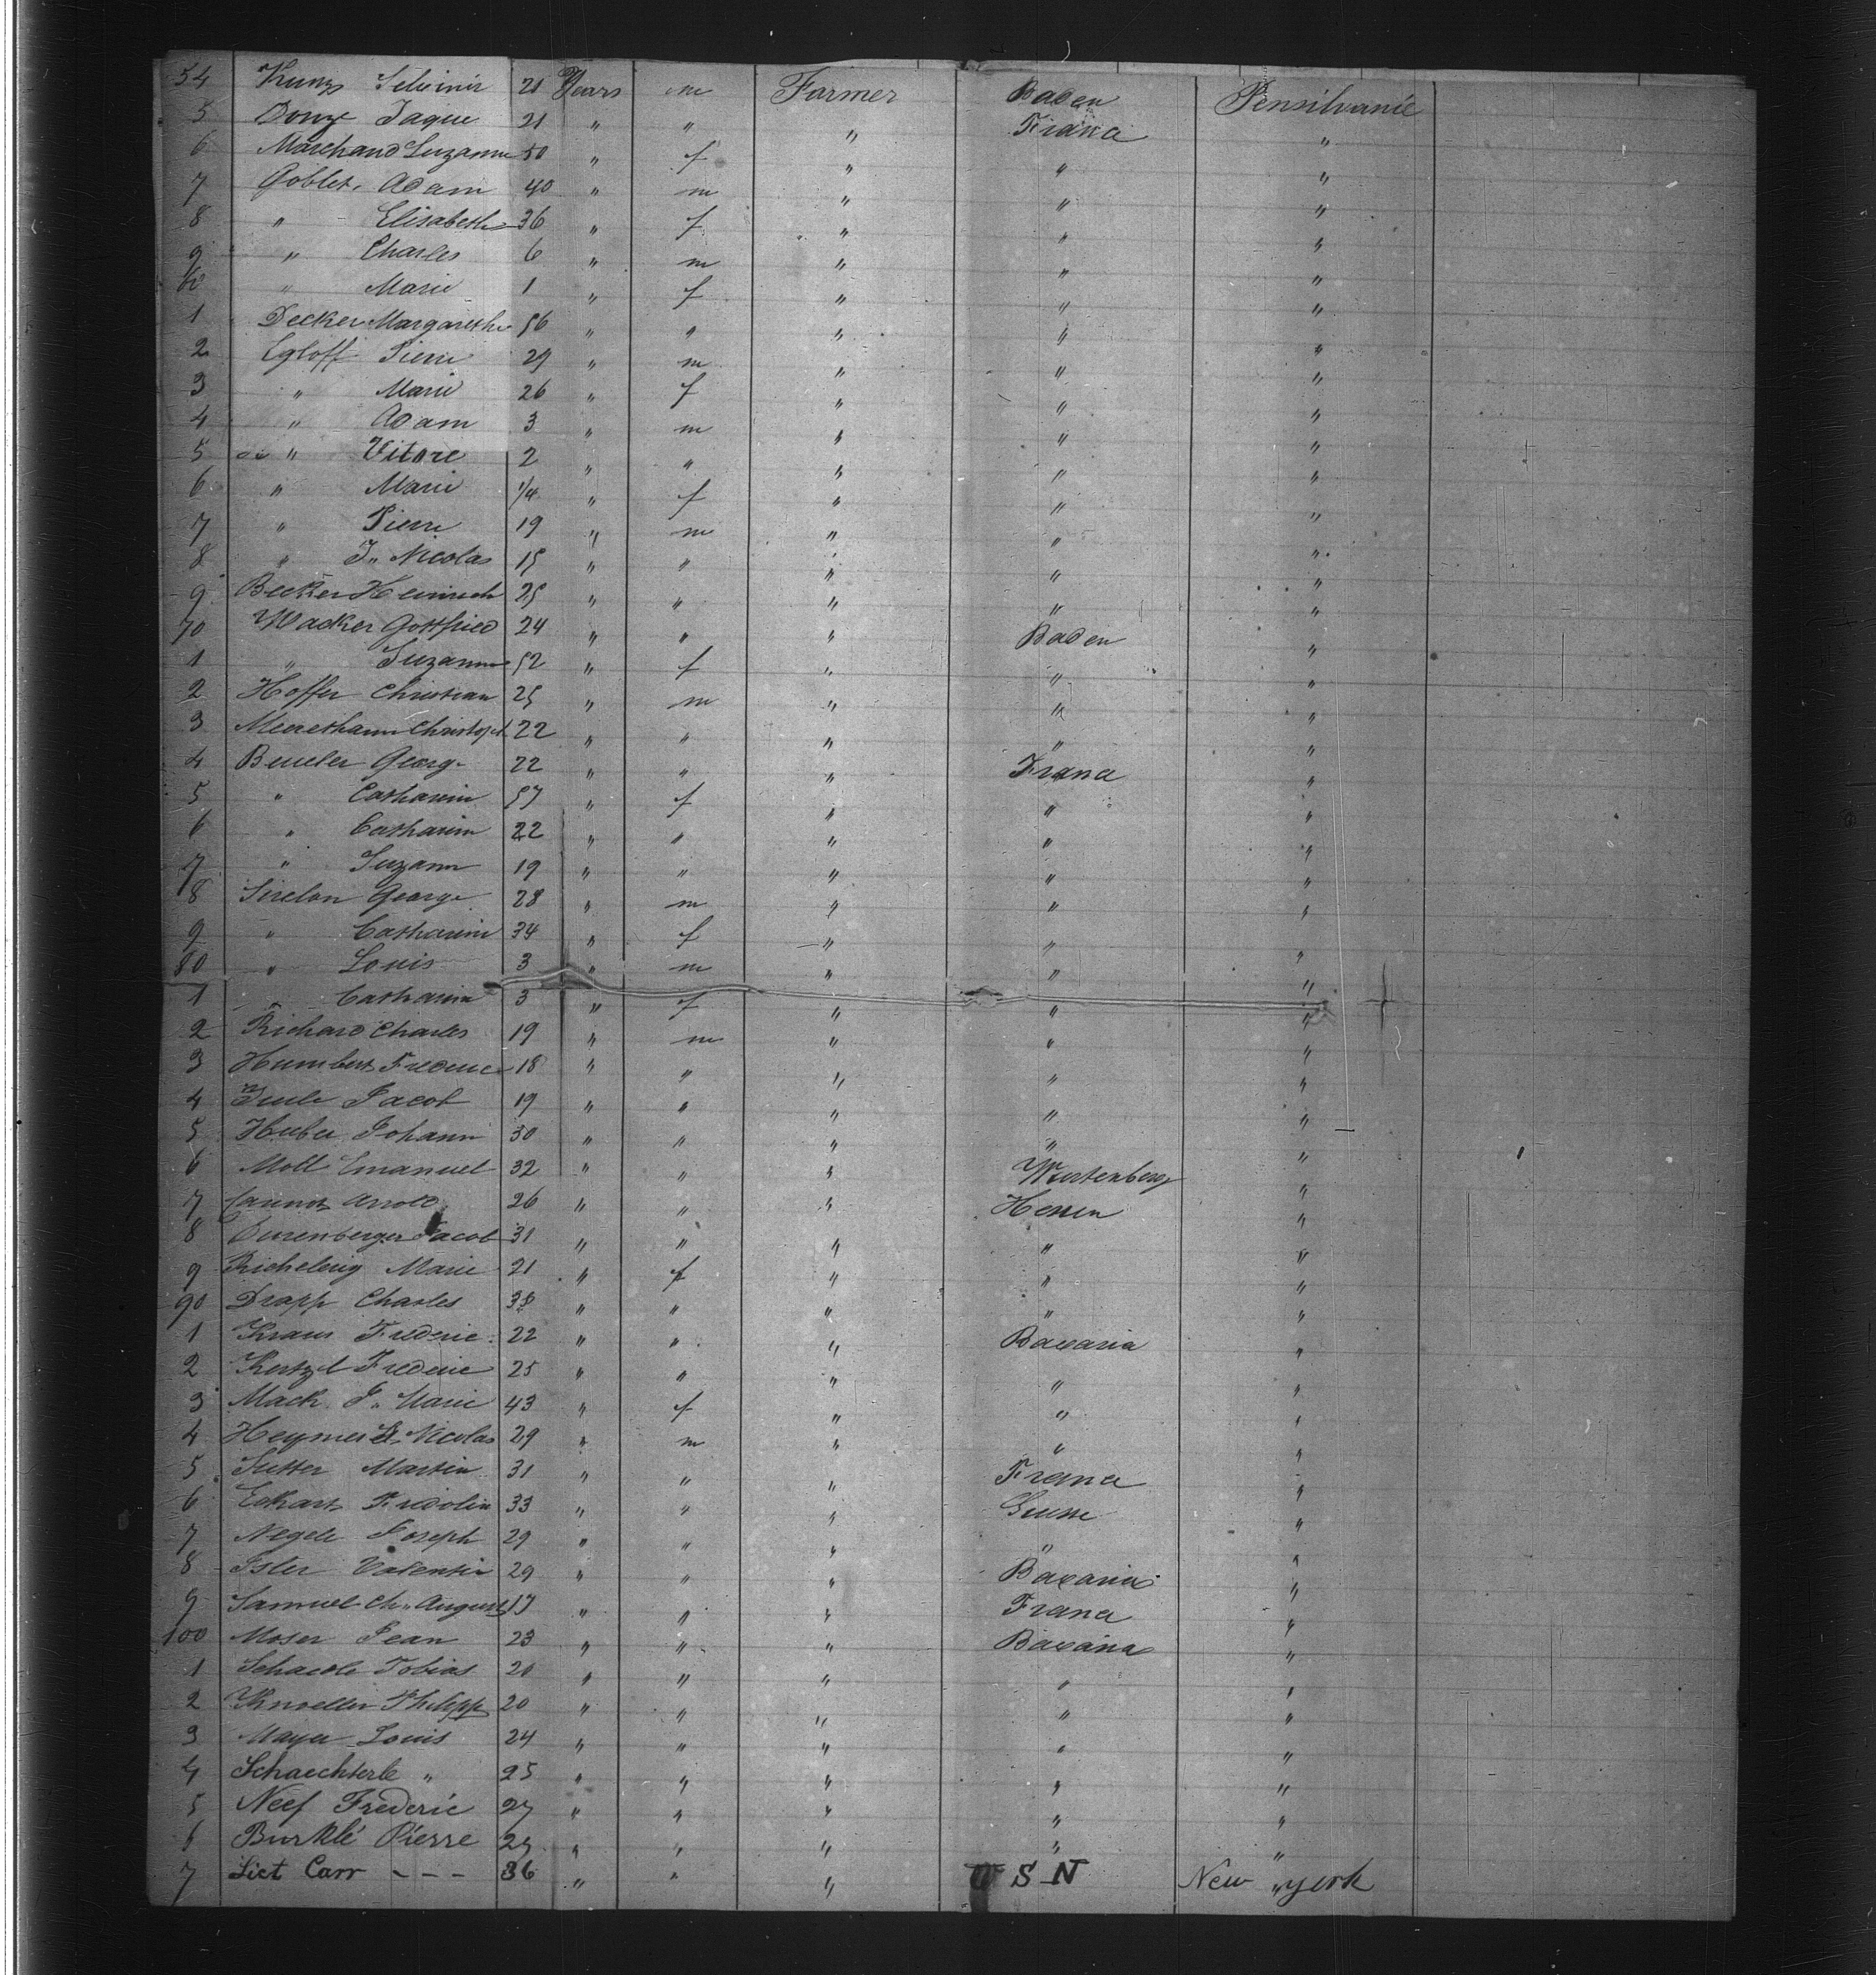 54 Kunz 21 Years m Farmer Baden Pensilvanie
5 Donze Jaque 21 " " " France "
6 Marchand Suzanne 50 " f " " "
7 Goblet, Adam 40 " m " " "
8 " Elisabeth 36 " f " " "
9 " Charles 6 " m " " "
60 " Marie 1 " f " " "
1 Decker Margarethe 56 " " " " "
2 Egloff Pierre 29 " m " " "
3 " Marie 26 " f " " "
4 " Adam 3 " m " " "
5 " Vitore 2 " " " " "
6 " Marie 1/4 " f " " "
7 " Pierre 19 " m " " "
8 " J. Nicolas 15 " " " " "
9 Becker Heinrich 25 " " " " "
70 Wacker Gottfried 24 " " " Baden "
1 " Suzanne 52 " f " " "
2 Hoffer Christian 25 " m " " "
3 22 " " " " "
4 Beucler George 22 " " " France "
5 " Catharine 57 " f " " "
6 " Catharine 22 " " " " "
7 " Suzann 19 " " " " "
8 George 28 " m " " "
9 " Catharine 34 " f " " "
80 " Louis 3 " m " " "
1 " Catharina 3 " f " " "
2 Richard Charles 19 " m " " "
3 Humbert Frederic 18 " " " " "
4 Jacob 19 " " " " "
5 Huber Johann 30 " " " " "
6 Moll Emanuel 32 " " " Wurtenberg "
7 26 " " " Hessen "
8 Jacob 31 " " " " "
9 Marie 21 " f " " "
90 Drapp Charles 35 " " " " "
1 Kraus Frederic. 22 " " " Bavaria "
2 Frederic 25 " " " " "
3 Mack J. Marie 43 " f " " "
4 Nicolas 29 " m " " "
5 Sutter Martin 31 " " " France "
6 Eckart Fridolin 33 " " " "
7 Negele Joseph 29 " " " " "
8 Isler Valentin 29 " " " Bavaria "
9 Samuel Ch. August 17 " " " France "
100 Moser Jean 23 " " " Bavaria "
1 Tobias 20 " " " " "
2 Knoeller Philipp 20 " " " " "
3 Mayer Louis 24 " " " " "
4 Schaechterle " 25 " " " " "
5 Neef Frederic 27 " " " " "
6 Burklé Pierre 25 " " " " "
7 Carr - - - 36 " " " S N New york